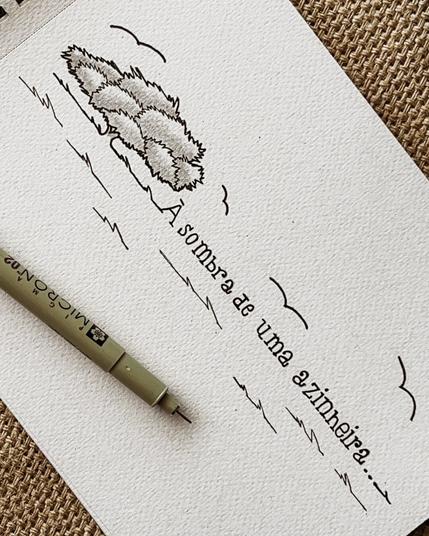 À sombra de uma azinheira...
PIGMA
MICRON 02